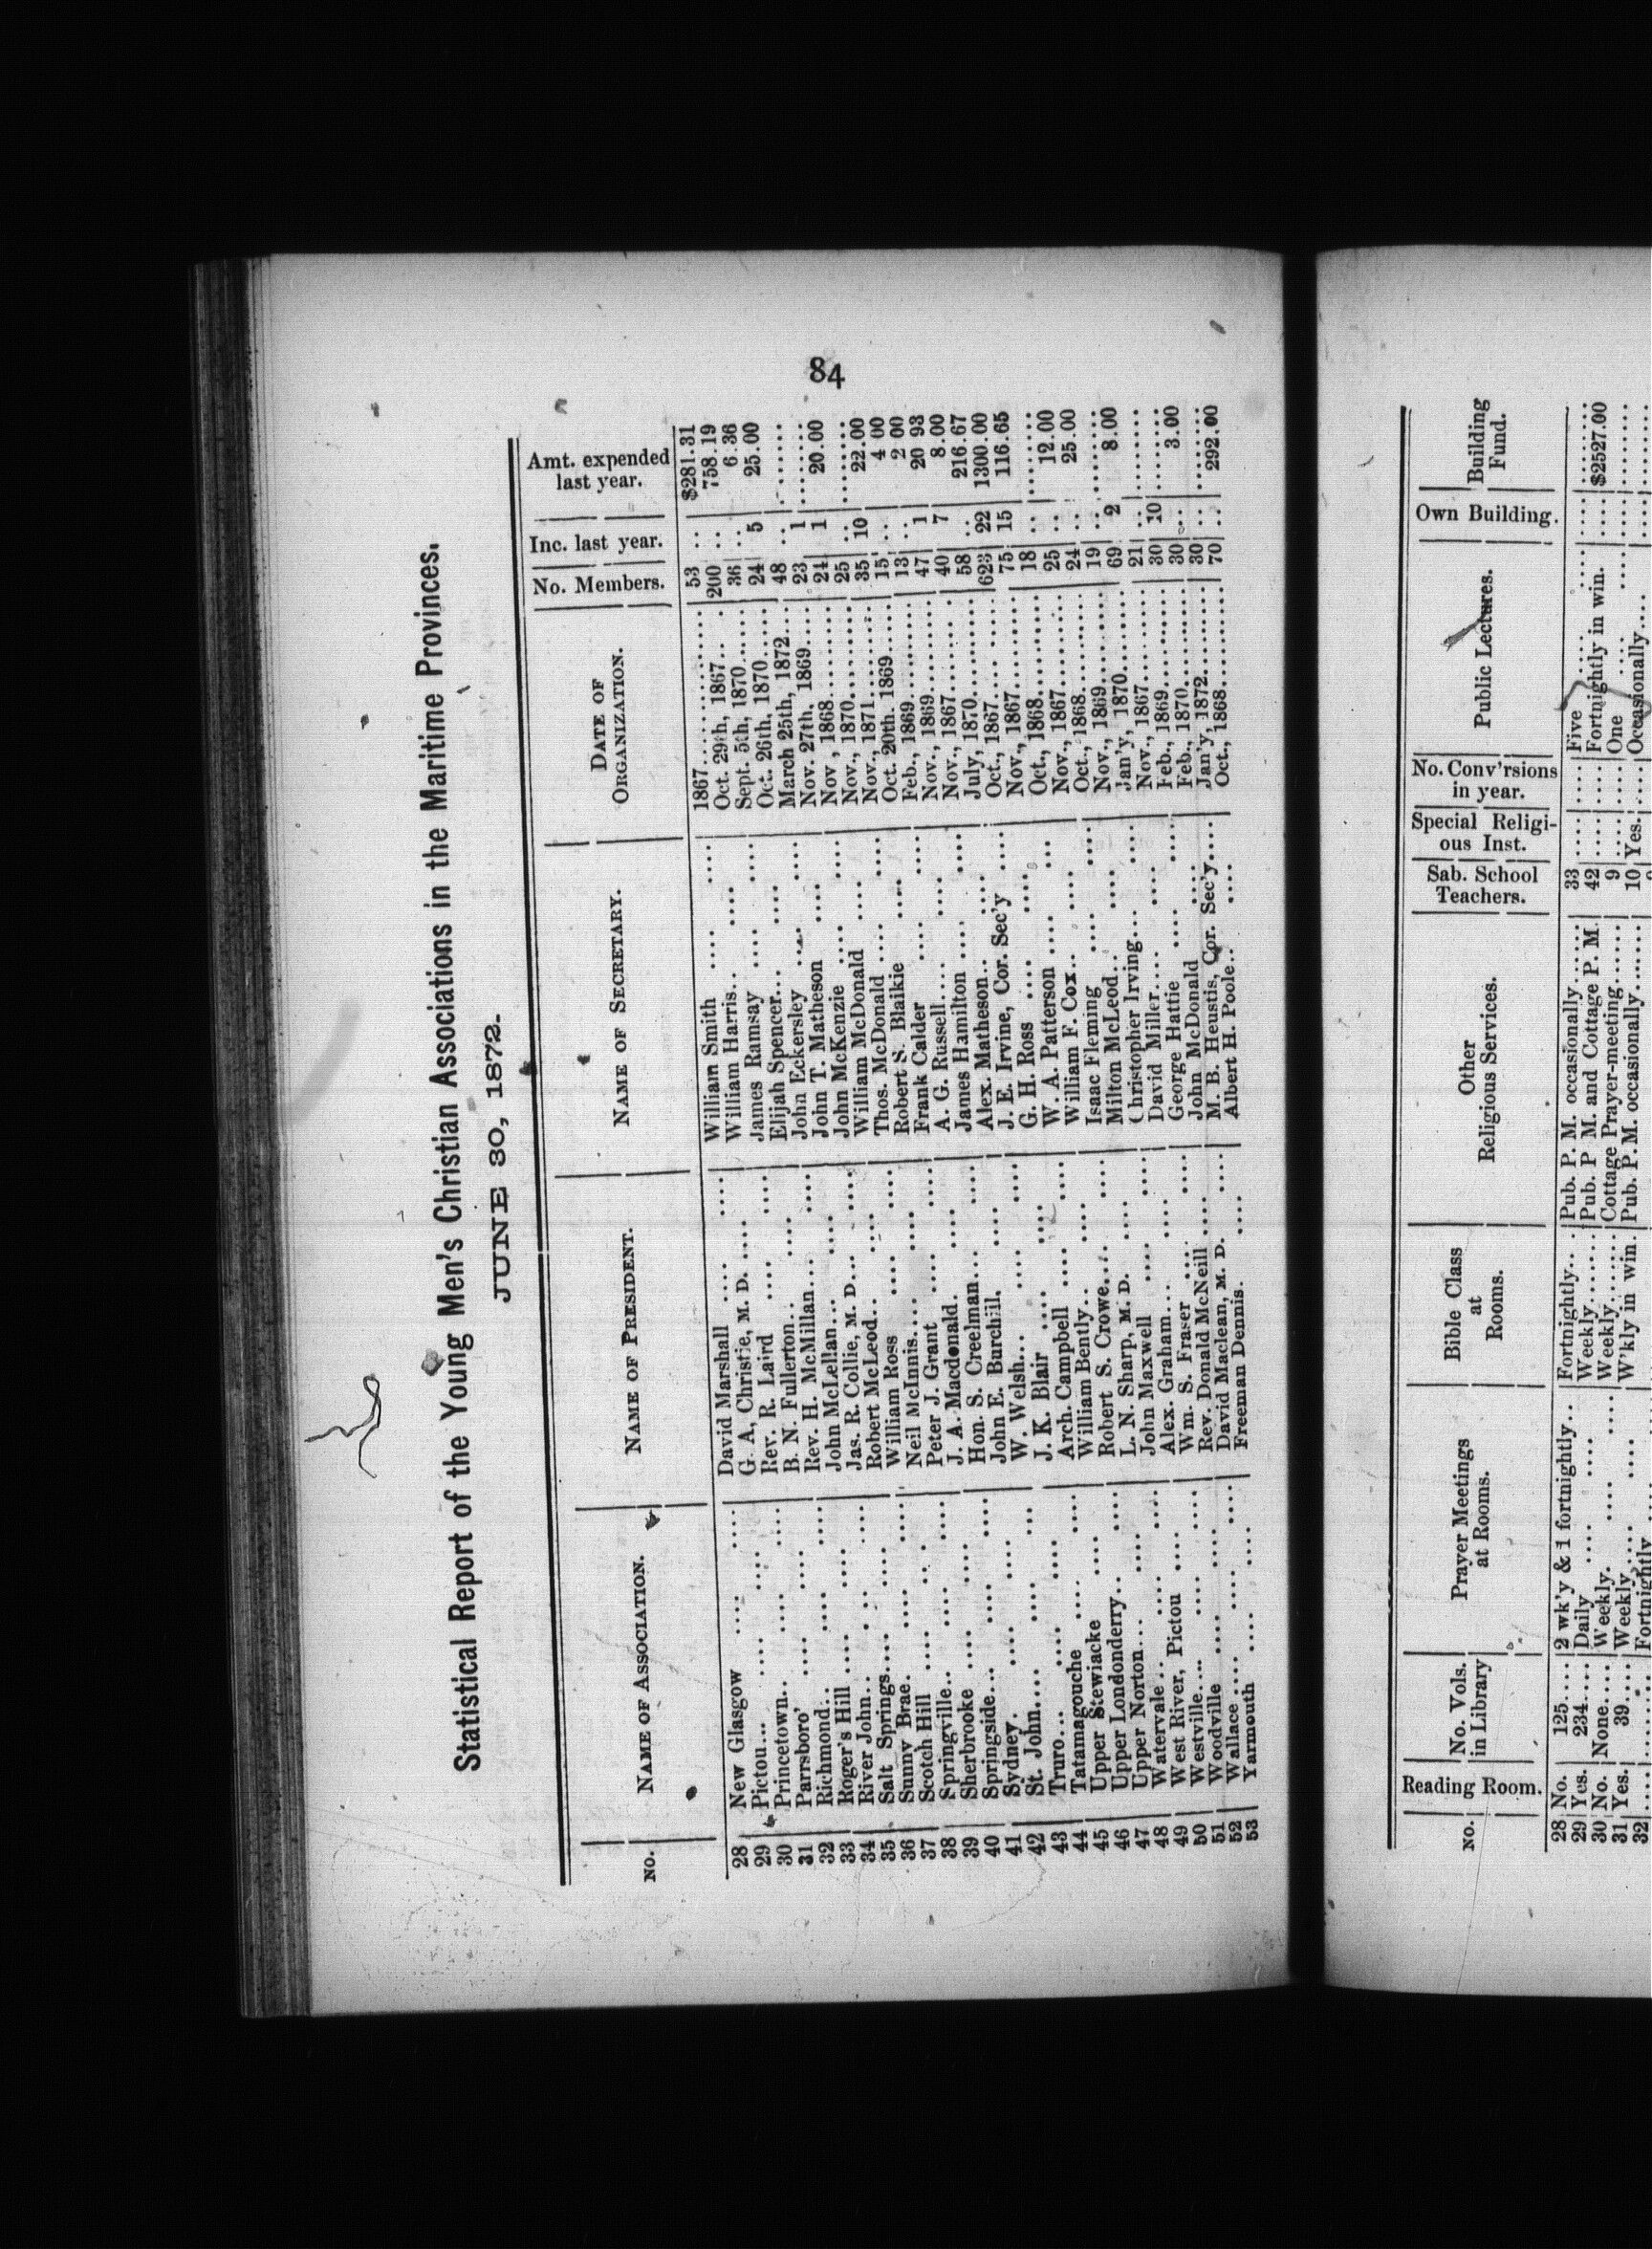 84
Statistical Report of the Young Men's Christian Associations in the Maritime Provinces.
JUNE 30, 1872.
No. NAME OF ASSOCIATION. NAME OF PRESIDENT. NAME OF SECRETARY. DATE OF ORGANIZATION. No. Members. Inc. last year. Amt. expended last year.
28 New Glasgow .... David Marshall .... William Smith .... 1867.... 53 .. $281.31
29 Pictou.... G. A, Christie, M. D. .... William Harris.. .... Oct. 29th, 1867.. . 200 .. 758.19
30 Princetown.. .... Rev. R. Laird .... James Ramsay .... Sept. 5th, 1870.... 36 .. 6.36
31 Parrsboro' .... B. N. Fullerton.. .... Elijah Spencer... .... Oct. 26th, 1870.... 24 5 25.00
32 Richmond.. .... Rev. H. McMillan... .... John Eckersley .... March 25th, 1872... 48 .. ....
33 Roger's Hill .... John McLellan... .... John T. Matheson .... Nov. 27th, 1869.... 23 1 ....
34 River John.. .... Jas. R. Collie, M. D... .... John McKenzie .... Nov , 1868.... 24 1 20.00
35 Salt Springs.... Robert McLeod.. .... William McDonald .... Nov., 1870.... 25 .. ....
36 Sunny Brae.. .... William Ross .... Thos. McDonald .... Nov., 1871.... 35 10 22.00
37 Scotch Hill .... Neil McInnis.... Robert S. Blaikie .... Oct. 20th. 1869.... 15 .. 4 00
38 Springville.. .... Peter J. Grant .... Frank Calder .... Feb., 1869.... 13 .. 2 00
39 Sherbrooke .... J. A. Macdonald. .... A. G. Russell.... Nov., 1869.... 47 1 20 93
40 Springside... .... Hon. S. Creelman... .... James Hamilton .... Nov., 1867.... 40 7 8.00
41 Sydney. .... John E. Burchill. .... Alex. Matheson.. .... July, 1870.... 58 .. 216.67
42 St. John.... W. Welsh... .... J. E. Irvine, Cor. Sec'y .... Oct., 1867.... 623 22 1300.00
43 Truro... .... J. K. Blair .... G. H. Ross .... Nov., 1867.... 75 15 116.65
44 Tatamagouche .... Arch. Campbell .... W. A. Patterson .... Oct., 1868.... 18 .. ....
45 Upper Stewiacke .... William Bently.. .... William F. Cox.. .... Nov., 1867.... 25 .. 12.00
46 Upper Londonderry.. .... Robert S. Crowe.... Isaac Fleming .... Oct., 1868.... 24 .. 25.00
47 Upper Norton... .... L. N. Sharp, M. D. .... Milton McLeod.. .... Nov., 1869.... 19 .. ....
48 Watervale.. .... John Maxwell .... Christopher Irving... .... Jan'y, 1870.... 69 2 8.00
49 West River, Pictou .... Alex. Graham... .... David Miller.... Nov., 1867.... 21 .. ....
50 Westville.... Wm. S. Fraser .... George Hattie .... Feb., 1869.... 30 10 ....
51 Woodville .... Rev. Donald McNeill .... John McDonald .... Feb., 1870.... 30 .. 3.00
52 Wallace.... David Maclean, M. D. .... M. B. Heustis, Cor. Sec'y.... Jan'y, 1872.... 30 .. ....
53 Yarmouth .... Freeman Dennis. .... Albert H. Poole.. .... Oct., 1868.... 70 .. 292.00
No. Reading Room. No. Vols. in Library Prayer Meetings at Rooms. Bible Class at Rooms. Other Religious Services. Sab. School Teachers. Special Religious Inst. No. Conv'rsions in year. Public Lectures. Own Building. Building Fund.
28 No. 125.... 2 wk'y & 1 fortnightly.. Fortnightly.. . Pub. P. M. occasionally .... 33 .... .... Five .... .... ....
29 Yes. 234.... Daily .... Weekly.... Pub. P M. and Cottage P. M. 42 .... .... Fortnightly in win. .... $2527.00
30 No. None.... Weekly. .... Weekly.... Cottage Prayer-meeting.... 9 .... .... One .... .... ....
31 Yes. 39.... Weekly .... W'kly in win. Pub. P. M. occasionally.... 10 Yes. .... Occasionally.... .... ....
32 .... Fortnightly